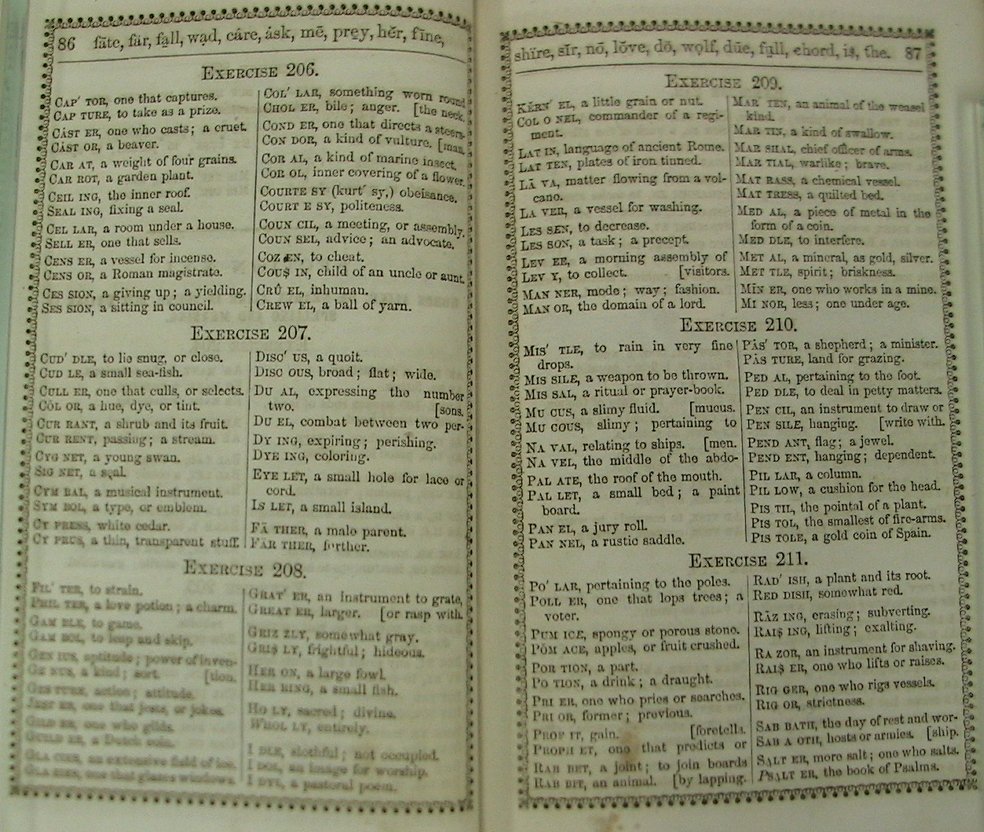 86 fāte, fär, fạll, wạd, cáre, ásk, mē, prẹy, hẽr, fīne,
EXERCISE 206.
CAP' TOR, one that captures.
CAP TURE, to take as a prize.
CÁST ER, one who casts; a cruet.
CÁST OR, a beaver.
CAR AT, a weight of four grains.
CAR ROT, a garden plant.
CEIL ING, the inner roof.
SEAL ING, fixing a seal.
CEL LAR, a room under a house.
SELL ER, one that sells.
CENS ER, a vessel for incense.
CENS OR, a Roman magistrate.
CES SION, a giving up; a yielding.
SES SION, a sitting in council.
COL' LAR, something worn round
CHOL ER, bile; anger. [the neck.
COND ER, one that directs a steers-
CON DOR, a kind of vulture. [man.
COR AL, a kind of marine insect.
COR OL, inner covering of a flower.
COURTE SY (kurt' sy,) obeisance.
COURT E SY, politeness.
COUN CIL, a meeting, or assembly.
COUN SEL, advice; an advocate.
COZ EN, to cheat.
COUṢ IN, child of an uncle or aunt.
CRÛ EL, inhuman.
CREW EL, a ball of yarn.
EXERCISE 207.
CUD' DLE, to lie snug, or close.
CUD LE, a small sea-fish.
CULL ER, one that culls, or selects.
CÓL OR, a hue, dye, or tint.
CUR RANT, a shrub and its fruit.
CUR RENT, passing; a stream.
CYG NET, a young swan.
SIG NET, a seal.
CYM BAL, a musical instrument.
SYM BOL, a type, or emblem.
CY PRESS, white cedar.
CY PRUS, a thin, transparent stuff.
DISC' US, a quoit.
DISC OUS, broad; flat; wide.
DU AL, expressing the number
two. [sons.
DU EL, combat between two per-
DY ING, expiring; perishing.
DYE ING, coloring.
EYE LET, a small hole for lace or
cord.
IS LET, a small island.
FÄ THER, a male parent.
FÄR THER, further.
EXERCISE 208.
FIL' TER, to strain.
PHIL TER, a love potion; a charm.
GAM BLE, to game.
GAM BOL, to leap and skip.
GEN IUS, aptitude; power of inven-
GE NUS, a kind; sort. [tion.
GES TURE, action; attitude.
JEST ER, one that jests, or jokes.
GILD ER, one who gilds.
GUILD ER, a Dutch coin.
GLA CIER, an extensive field of ice.
GLA ZIER, one that glazes windows.
GRAT' ER, an instrument to grate,
GREAT ER, larger. [or rasp with.
GRIZ ZLY, somewhat gray.
GRIṢ LY, frightful; hideous.
HER ON, a large fowl.
HER RING, a small fish.
HO LY, sacred; divine.
WHOL LY, entirely.
I DLE, slothful; not occupied.
I DOL, an image for worship.
I DYL, a pastoral poem.
shīre, sïr, nō, lóve, dọ, wọlf, dūe, fụll, chord, iṣ, the. 87
EXERCISE 209.
KẼRN' EL, a little grain or nut.
COL O NEL, commander of a regi-
ment.
LAT IN, language of ancient Rome.
LAT TEN, plates of iron tinned.
LÄ VA, matter flowing from a vol-
cano.
LA VER, a vessel for washing.
LES SEN, to decrease.
LES SON, a task; a precept.
LEV EE, a morning assembly of
LEV Y, to collect. [visitors.
MAN NER, mode; way; fashion.
MAN OR, the domain of a lord.
MAR' TEN, an animal of the weasel
kind.
MAR TIN, a kind of swallow.
MAR SHAL, chief officer of arms.
MAR TIAL, warlike; brave.
MAT RASS, a chemical vessel.
MAT TRESS, a quilted bed.
MED AL, a piece of metal in the
form of a coin.
MED DLE, to interfere.
MET AL, a mineral, as gold, silver.
MET TLE, spirit; briskness.
MIN ER, one who works in a mine.
MI NOR, less; one under age.
EXERCISE 210.
MIS' TLE, to rain in very fine
drops.
MIS SILE, a weapon to be thrown.
MIS SAL, a ritual or prayer-book.
MU CUS, a slimy fluid. [mucus.
MU COUS, slimy; pertaining to
NA VAL, relating to ships. [men.
NA VEL, the middle of the abdo-
PAL ATE, the roof of the mouth.
PAL LET, a small bed; a paint
board.
PAN EL, a jury roll.
PAN NEL, a rustic saddle.
PÁS' TOR, a shepherd; a minister.
PÁS TURE, land for grazing.
PED AL, pertaining to the foot.
PED DLE, to deal in petty matters.
PEN CIL, an instrument to draw or
PEN SILE, hanging. [write with.
PEND ANT, flag; a jewel.
PEND ENT, hanging; dependent.
PIL LAR, a column.
PIL LOW, a cushion for the head.
PIS TIL, the pointal of a plant.
PIS TOL, the smallest of fire-arms.
PIS TOLE, a gold coin of Spain.
EXERCISE 211.
PO' LAR, pertaining to the poles.
POLL ER, one that lops trees; a
voter.
PUM ICE, spongy or porous stone.
PÓM ACE, apples, or fruit crushed.
POR TION, a part.
PO TION, a drink; a draught.
PRI ER, one who pries or searches.
PRI OR, former; previous.
PROF IT, gain. [foretells.
PROPH ET, one that predicts or
RAB BET, a joint; to join boards
RAB BIT, an animal. [by lapping.
RAD' ISH, a plant and its root.
RED DISH, somewhat red.
RĀZ ING, erasing; subverting.
RAIṢ ING, lifting; exalting.
RA ZOR, an instrument for shaving.
RAIṢ ER, one who lifts or raises.
RIG GER, one who rigs vessels.
RIG OR, strictness.
SAB BATH, the day of rest and wor-
SAB A OTH, hosts or armies. [ship.
SALT ER, more salt; one who salts.
PSALT ER, the book of Psalms.